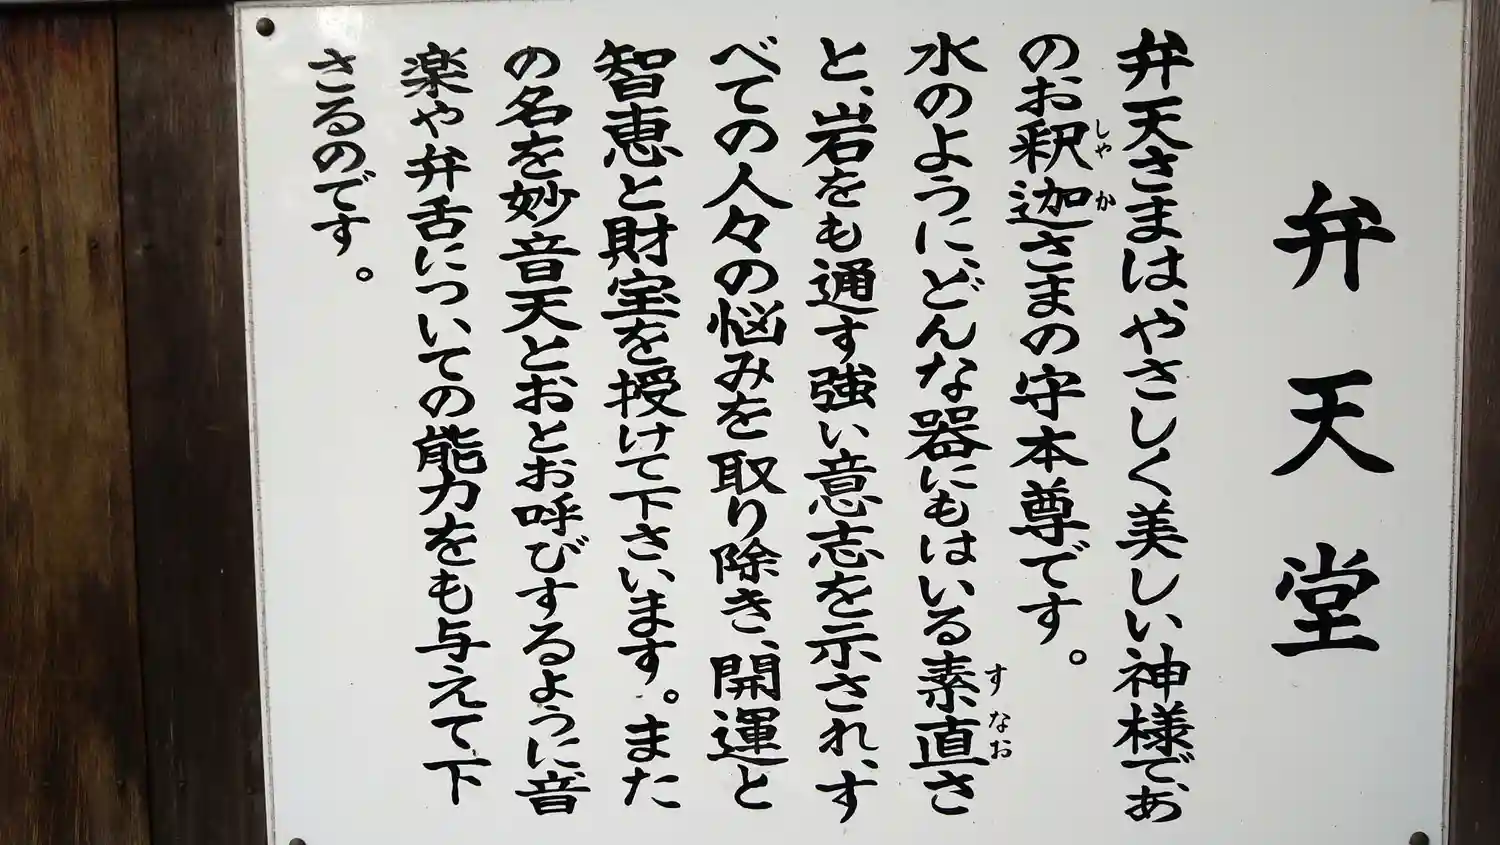 弁天堂
弁天さまは、やさしく美しい神様であ
のお釈迦さまの守本尊です。
しゃか
水のように、どんな器にもはいる素直さ
すなお
と、岩をも通す強い意志を示され、す
べての人々の悩みを取り除き、開運と
智恵と財宝を授けて下さいます。また
の名を妙音天とおとお呼びするように音
楽や弁舌についての能力をも与えて下
さるのです。